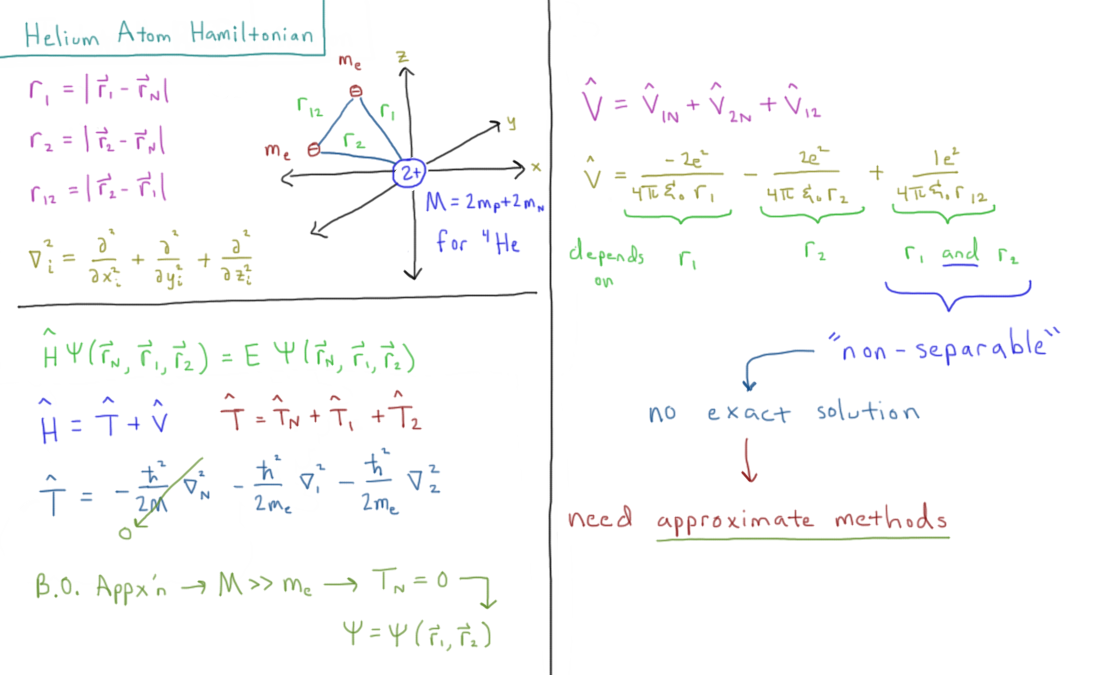 Helium Atom Hamiltonian
r₁ = |r⃗₁ - r⃗_N|
r₂ = |r⃗₂ - r⃗_N|
r₁₂ = |r⃗₂ - r⃗₁|
∇ᵢ² = ∂²/∂xᵢ² + ∂²/∂yᵢ² + ∂²/∂zᵢ²
z
mₑ
⊖
r₁₂
r₁
y
mₑ
⊖
r₂
2+
x
M = 2m_p+2m_N
for ⁴He
Ĥ Ψ(r⃗_N, r⃗₁, r⃗₂) = E Ψ(r⃗_N, r⃗₁, r⃗₂)
Ĥ = T̂ + V̂
T̂ = T̂_N + T̂₁ + T̂₂
T̂ = -ħ²/2M ∇_N² - ħ²/2mₑ ∇₁² - ħ²/2mₑ ∇₂²
0
B.O. Appx'n → M >> mₑ → T_N = 0
Ψ = Ψ(r⃗₁, r⃗₂)
V̂ = V̂_1N + V̂_2N + V̂₁₂
V̂ = -2e²/4πε₀r₁ - 2e²/4πε₀r₂ + 1e²/4πε₀r₁₂
depends on
r₁
r₂
r₁ and r₂
"non-separable"
no exact solution
need approximate methods